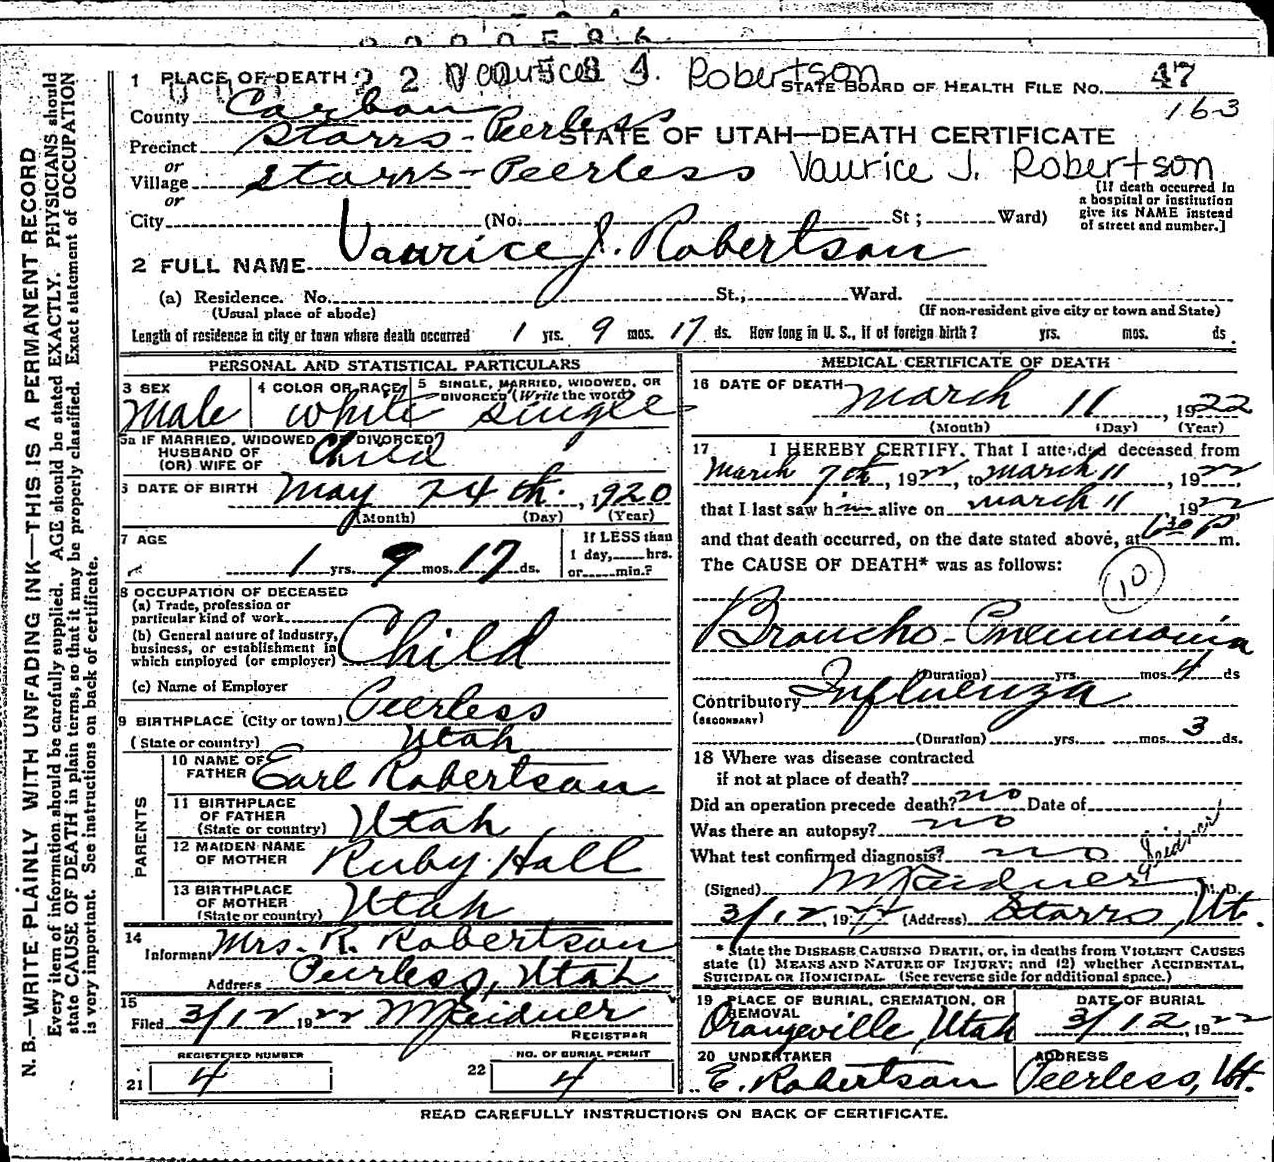 1 PLACE OF DEATH Vaurice J. Robertson STATE BOARD OF HEALTH FILE NO. 47
163
County Carbon
Precinct Starrs-Peerless STATE OF UTAH—DEATH CERTIFICATE
or
Village Starrs-Peerless Vaurice J. Robertson
or
City (No. St ; Ward) [If death occurred in a hospital or institution give its NAME instead of street and number.]
2 FULL NAME Vaurice J. Robertson
(a) Residence. No. St., Ward.
(Usual place of abode) (If non-resident give city or town and State)
Length of residence in city or town where death occurred 1 yrs. 9 mos. 17 ds. How long in U. S., if of foreign birth? yrs. mos. ds.
PERSONAL AND STATISTICAL PARTICULARS
3 SEX 4 COLOR OR RACE 5 SINGLE, MARRIED, WIDOWED, OR DIVORCED (Write the word)
Male white single
5a IF MARRIED, WIDOWED OR DIVORCED
HUSBAND OF
(OR) WIFE OF Child
6 DATE OF BIRTH May 24th. 1920
(Month) (Day) (Year)
7 AGE If LESS than
1 day, hrs.
1 yrs. 9 mos. 17 ds. or min.?
8 OCCUPATION OF DECEASED
(a) Trade, profession or
particular kind of work
(b) General nature of industry,
business, or establishment in
which employed (or employer) Child
(c) Name of Employer
9 BIRTHPLACE (City or town) Peerless
(State or country) Utah
PARENTS
10 NAME OF
FATHER Earl Robertson
11 BIRTHPLACE
OF FATHER
(State or country) Utah
12 MAIDEN NAME
OF MOTHER Ruby Hall
13 BIRTHPLACE
OF MOTHER
(State or country) Utah
14
Informant Mrs. R. Robertson
Address Peerless, Utah
15
Filed 3/12, 1922
REGISTRAR
REGISTERED NUMBER NO. OF BURIAL PERMIT
21 4 22 4
MEDICAL CERTIFICATE OF DEATH
16 DATE OF DEATH March 11, 1922
(Month) (Day) (Year)
17 I HEREBY CERTIFY, That I attended deceased from
March 7th, 1922, to March 11, 1922
that I last saw him alive on March 11, 1922
and that death occurred, on the date stated above, at 6:30 P m.
The CAUSE OF DEATH* was as follows:
10
Broncho-Pneumonia
(Duration) yrs. mos. 4 ds
Contributory Influenza
(SECONDARY)
(Duration) yrs. mos. 3 ds.
18 Where was disease contracted
if not at place of death?
Did an operation precede death? no Date of
Was there an autopsy? no
What test confirmed diagnosis? no
(Signed) M. D.
3/12, 1922 (Address) Starrs, Ut.
* State the DISEASE CAUSING DEATH, or, in deaths from VIOLENT CAUSES
state (1) MEANS AND NATURE OF INJURY; and (2) whether ACCIDENTAL,
SUICIDAL or HOMICIDAL. (See reverse side for additional space.)
19 PLACE OF BURIAL, CREMATION, OR REMOVAL DATE OF BURIAL
Orangeville, Utah 3/12, 1922
20 UNDERTAKER ADDRESS
E. Robertson Peerless, Ut.
READ CAREFULLY INSTRUCTIONS ON BACK OF CERTIFICATE.
N. B.—WRITE PLAINLY WITH UNFADING INK—THIS IS A PERMANENT RECORD
Every item of information should be carefully supplied. AGE should be stated EXACTLY. PHYSICIANS should
state CAUSE OF DEATH in plain terms, so that it may be properly classified. Exact statement of OCCUPATION
is very important. See instructions on back of certificate.